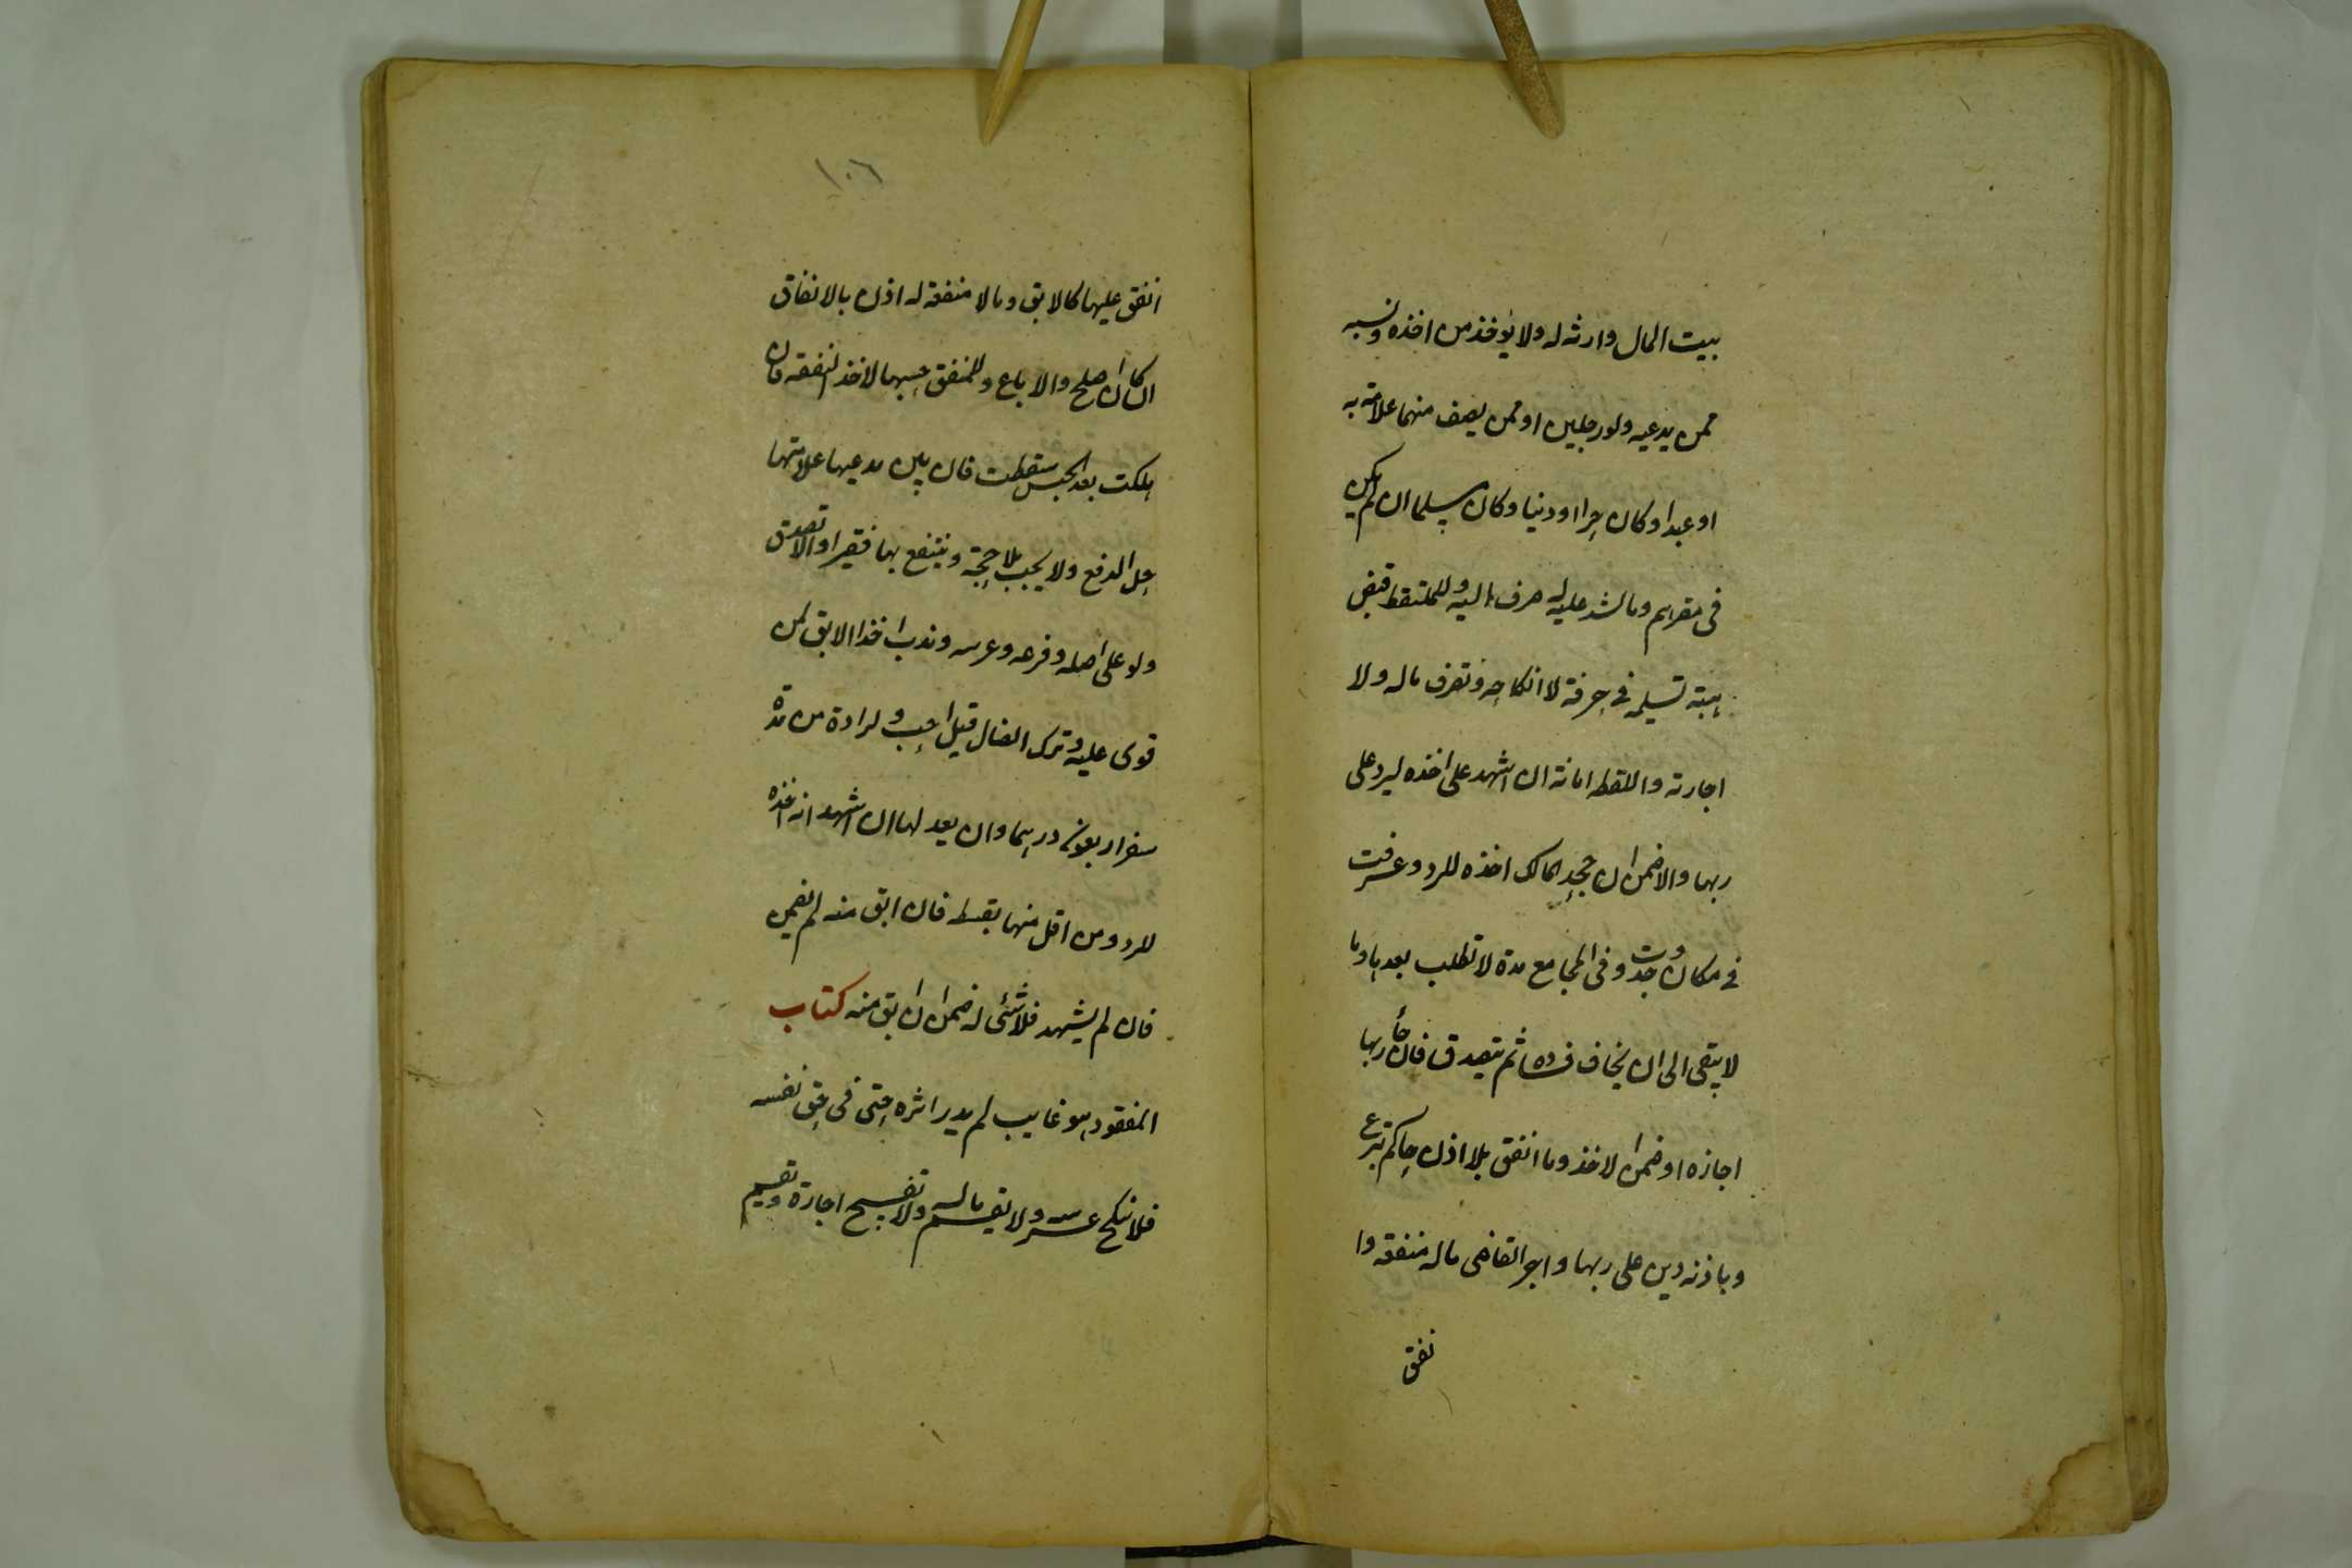 بيت المال وارثه له ولا يؤخذ من اخذه ونسبه
ممن يدعيه ولو رجلين او ممن يصف منهما علامة به
او عبدا وكان حرا او دنيا وكان مسلما ان لم يكن
فى مقرهم وما شد عليه له صرف اليه وللملتقط قبض
هبته تسليمه فى حرفة لا انكاحه وتصرف ماله ولا
اجارته واللقطه امانة ان اشهد على اخذه ليرد على
ربها والا ضمن ان جحد المالك اخذه للرد وعرفت
فى مكان وجدت وفى المجامع مدة لا تطلب بعدها وما
لا يبقى الى ان يخاف فساده ثم يتصدق فان جأ ربها
اجازه او ضمن الاخذ وما انفق بلا اذن حاكم تبرع
وباذنه دين على ربها واجر القاضى ماله منفقه وا
نفق
١٠٦
انفق عليها كالابق وما لا منفعة له اذن بالانفاق
ان كان اصلح والا باع وللمنفق حبسها لاخذ النفقه فان
هلكت بعد الحبس سقطت فان بين مدعيها علامتها
حل الدفع ولا يجب بلا حجة وينتفع بها فقيرا والا تصدق
ولو على اصله وفرعه وعرسه وندب اخذ الابق لمن
قوى عليه وترك الضال قيل احب ولراده من مدة
سفر اربعون درهما وان يعدلها ان اشهد انه اخذه
للرد ومن اقل منها بقسطه فان ابق منه لم يضمن
فان لم يشهد فلا شئى له ضمن ان ابق منه كتاب
المفقود هو غايب لم يدر اثره حتى فى حق نفسه
فلا ينكح عرسه ولا يقسم ماله ولا تفسخ اجارة وتقيم